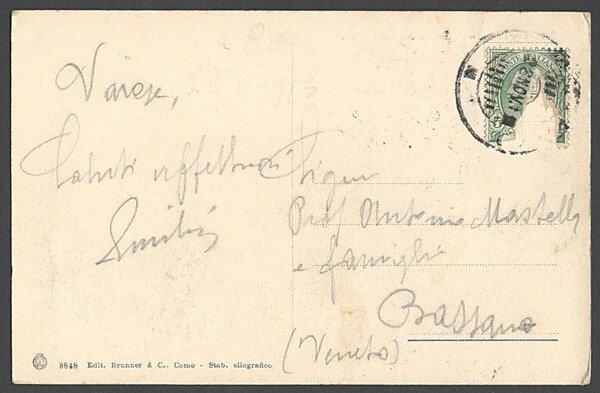 Varese,
Saluti affettuosi
Emilio
Sigr
Prof Antonio Mastella
e famiglia
Bassano
(Veneto)
8848 Edit. Brunner & C., Como - Stab. eliografico